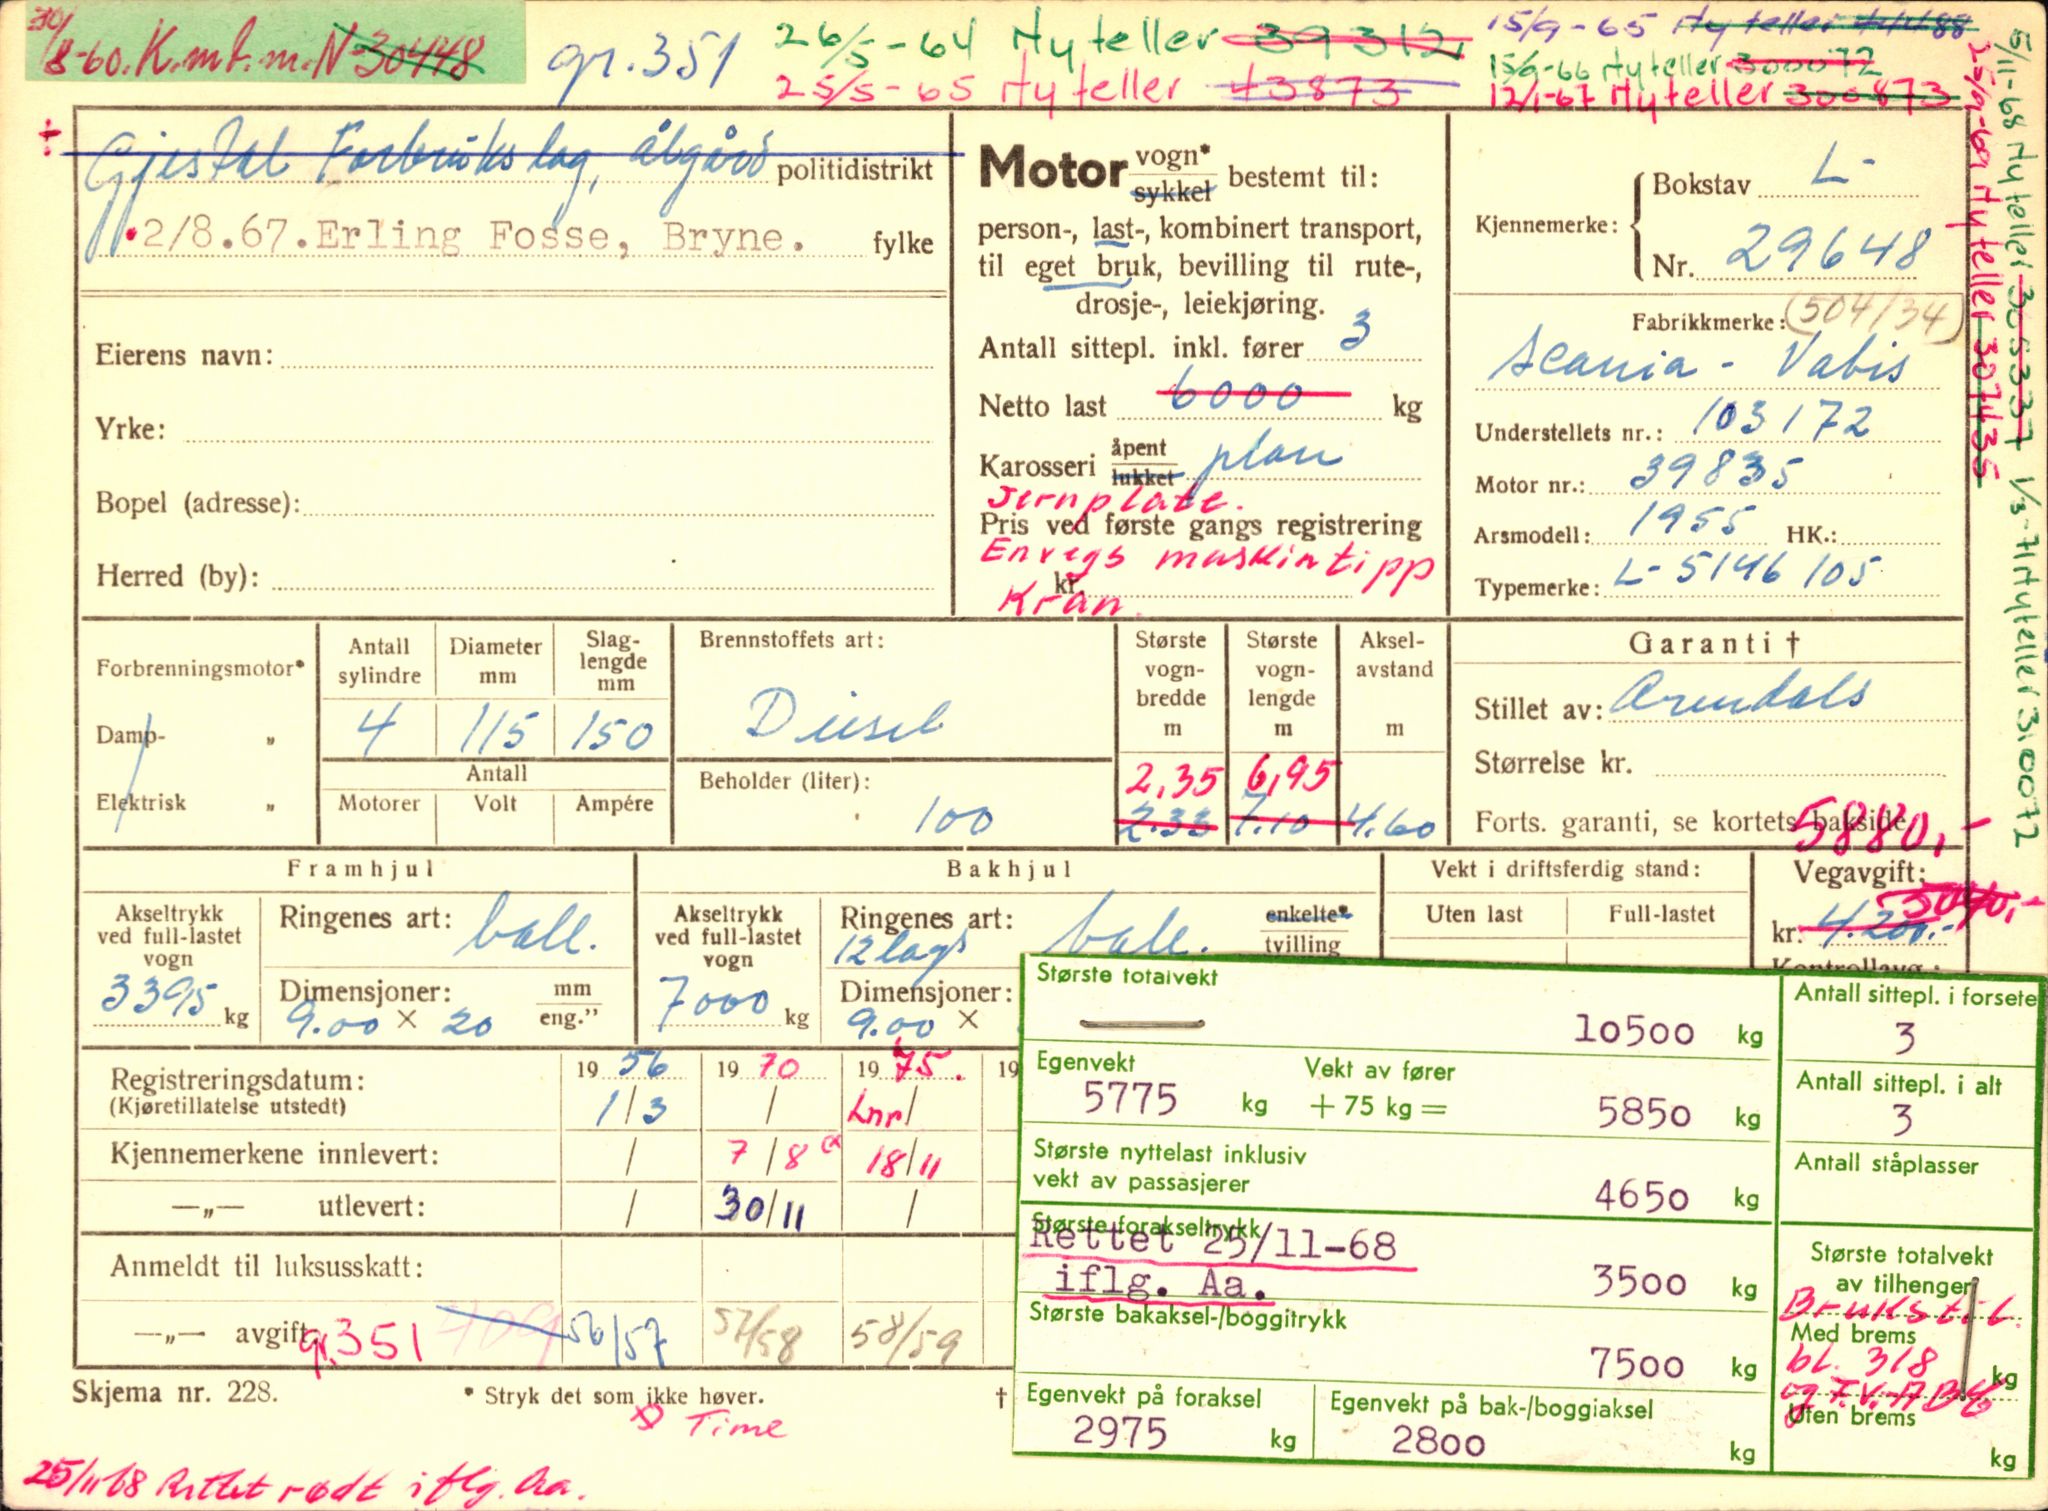 30/8-60. K.m.t.m. N-30448
gr. 351
26/5-64 Ny teller 39312
25/5-65 Ny teller 43873
15/9-65 Ny teller
15/9-66 Ny teller 300072
12/1-67 Ny teller 300873
25/9-69 Ny teller 307435
5/11-68 Ny teller 305337 1/3-71 Ny teller 310072
Gjestal Forbrukslag, Ålgård politidistrikt
2/8.67. Erling Fosse, Bryne. fylke
Eierens navn:
Yrke:
Bopel (adresse):
Herred (by):
Motor vogn* sykkel bestemt til:
person-, last-, kombinert transport,
til eget bruk, bevilling til rute-,
drosje-, leiekjøring.
Antall sittepl. inkl. fører 3
Netto last 6000 kg
Karosseri åpent lukket plan
Jernplate.
Pris ved første gangs registrering
Envegs maskintipp
kr.
Kran.
Kjennemerke: Bokstav L-
Nr. 29648
Fabrikkmerke: (504/34)
Scania - Vabis
Understellets nr.: 103172
Motor nr.: 39835
Arsmodell: 1955 HK.:
Typemerke: L-5146105
Forbrenningsmotor*
Damp- „
Elektrisk „
Antall sylindre
4
Diameter mm
115
Slag-lengde mm
150
Antall
Motorer Volt Ampére
Brennstoffets art:
Diesel
Beholder (liter):
100
Største vogn-bredde m
2,35
2.33
Største vogn-lengde m
6,95
7.10
Aksel-avstand m
4.60
Garanti †
Stillet av: Arendals
Størrelse kr.
Forts. garanti, se kortets bakside
5880,-
Framhjul
Akseltrykk ved full-lastet vogn
3395 kg
Ringenes art: ball.
Dimensjoner: mm eng.”
9.00 × 20
Bakhjul
Akseltrykk ved full-lastet vogn
7000 kg
Ringenes art: enkelte* tvilling
12 lags ball.
Dimensjoner:
9.00 ×
Vekt i driftsferdig stand:
Uten last Full-lastet
Vegavgift:
5040,-
kr. 4.200.-
Kontrollavg.:
Registreringsdatum: 19 56 19 70 19 75. 19
(Kjøretillatelse utstedt) 1/3 / Lnr/
Kjennemerkene innlevert: / 7/8 18/11
—„— utlevert: / 30/11 /
Anmeldt til luksusskatt:
—„— avgift gr. 351 409 56/57 57/58 58/59
Skjema nr. 228. * Stryk det som ikke høver. †
Time
25/11 68 Rettet rødt iflg. Aa.
Største totalvekt
10500 kg
Egenvekt Vekt av fører
5775 kg + 75 kg = 5850 kg
Største nyttelast inklusiv
vekt av passasjerer 4650 kg
Største forakseltrykk
Rettet 25/11-68
iflg. Aa. 3500 kg
Største bakaksel-/boggitrykk
7500 kg
Egenvekt på foraksel
2975 kg
Egenvekt på bak-/boggiaksel
2800 kg
Antall sittepl. i forsete
3
Antall sittepl. i alt
3
Antall ståplasser
Største totalvekt
av tilhenger
Bruks til.
Med brems
bl. 318 kg
Uten brems
kg